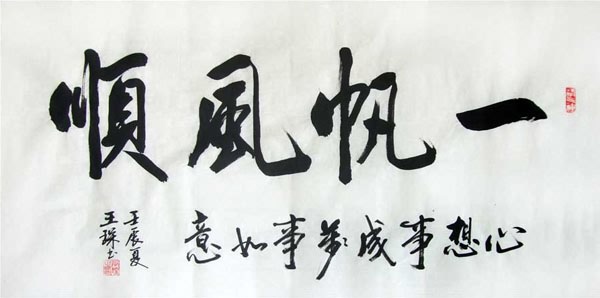 一帆風順
心想事成萬事如意
壬辰夏
王琛书